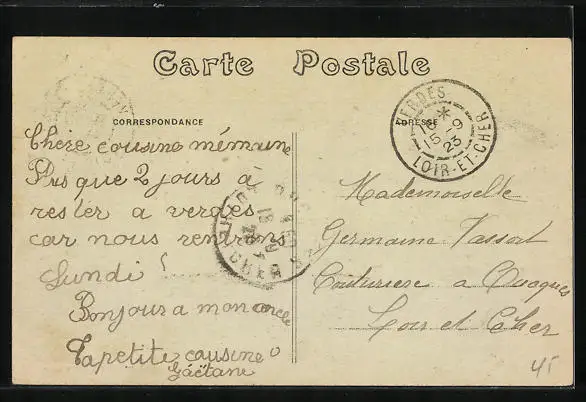 Carte Postale
CORRESPONDANCE
ADRESSE
Chere cousine mémaine
Pus que 2 jours a
rester a verdes
car nous rentrons
Lundi !
Bonjour a mon oncle
Ta petite cousine
Gaëtane
VERDES
16 *
15-9
25
LOIR-ET-CHER
CHER
Mademoiselle
Germaine Vassort
Couturiere a Ouaques
Loir et Cher
45